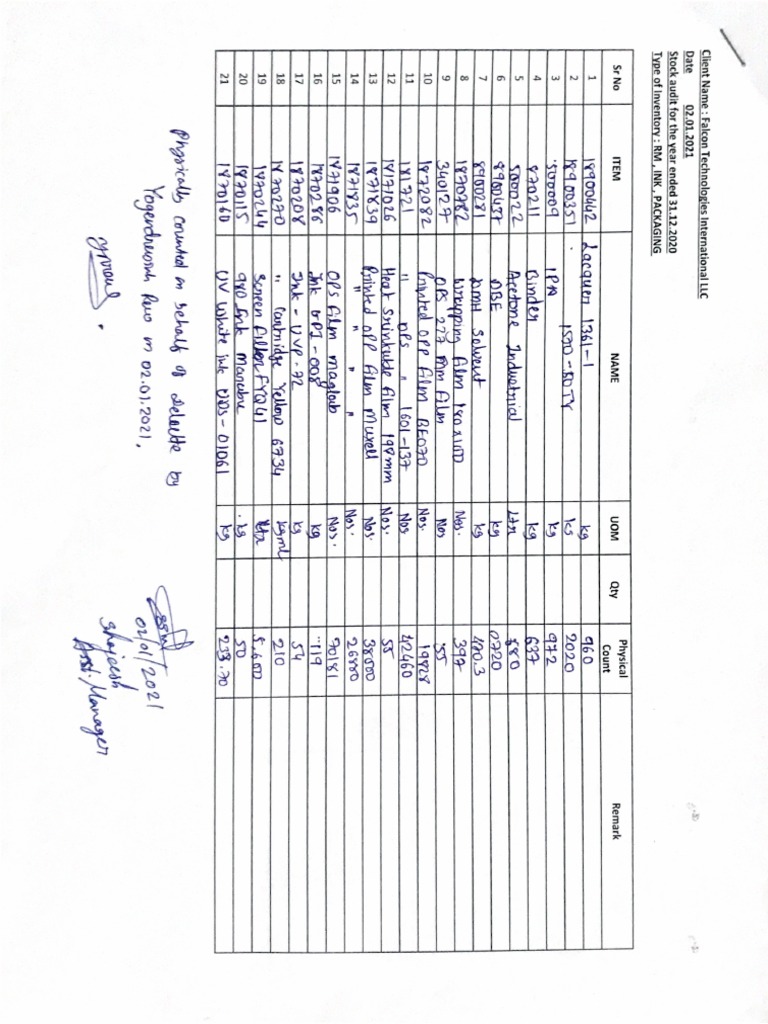 Client Name : Falcon Technologies International LLC
Date 02.01.2021
Stock audit for the year ended 31.12.2020
Type of Inventory : RM , INK , PACKAGING
Sr No ITEM NAME UOM Qty Physical Count Remark
1 18900442 Lacquer 1361-1 kg 960
2 18900351 kg 2020
3 500009 IPA kg 972
4 870211 Binder kg 637
5 5000022 Acetone Industrial Ltr 880
6 8900437 DBE kg 0720
7 8900281 DMH Solvent kg 480.3
8 1870782 Wrapping film 180x100 Nos. 397
9 340127 OPS 277 mm film Nos 55
10 1872082 Printed OPP film BE070 Nos. 19828
11 181721 " OPS " 1601-137 Nos 42460
12 18171026 Heat Srinkable film 198mm Nos. 55
13 1871839 Printed OPP film Muxell Nos. 38000
14 1871835 " " " " Nos. 26880
15 1871906 OPS film maglab Nos. 70181
16 1870286 Ink GPI-008 kg 119
17 1870208 Ink - UVP-72 kg 54
18 1870270 " Cartridge Yellow 6734 210
19 1870244 Screen filler FYQ41 Ltr 5.600
20 1870115 980 Ink Manabu kg 50
21 1870160 UV White ink UDS-01061 kg 233.70
Physically counted on behalf of deloitte by
on 02.01.2021,
02/01/2021
Shajeesh
Asst. Manager